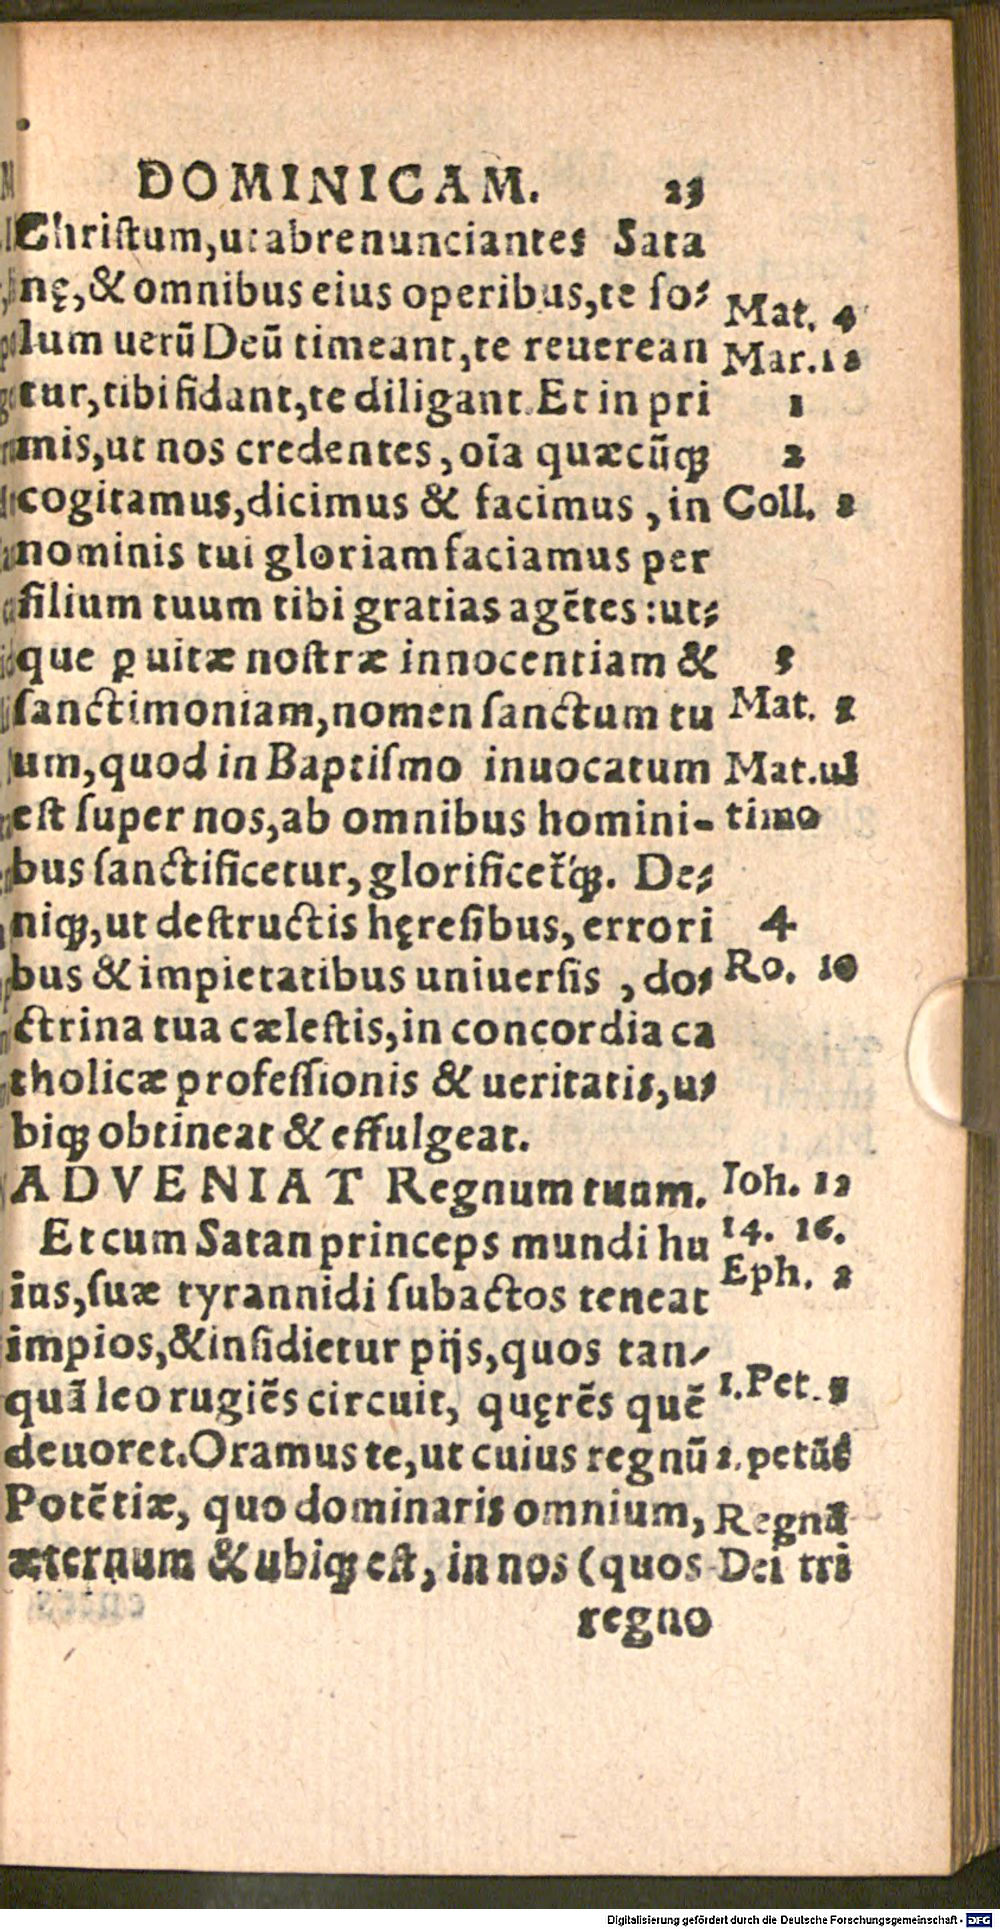 DOMINICAM. 23
Chriſtum,ut abrenunciantes Sata
nę,& omnibus eius operibus,te ſo⸗ Mat. 4
lum uerũ Deũ timeant,te reuerean Mar.12
tur,tibi fidant,te diligant.Et in pri 1
mis,ut nos credentes,oĩa quæcũqꝫ 2
cogitamus,dicimus & facimus, in Coll. 3
nominis tui gloriam faciamus per
filium tuum tibi gratias agẽtes:ut⸗
que ꝑ uitæ noſtræ innocentiam & 3
ſanctimoniam,nomen ſanctum tu Mat. 5
um,quod in Baptiſmo inuocatum Mat.ul
eſt ſuper nos,ab omnibus homini- timo
bus ſanctificetur, glorificet᷑qꝫ. De⸗
niqꝫ,ut deſtructis hęreſibus, errori 4
bus & impietatibus uniuerſis , do⸗ Ro. 10
ctrina tua cæleſtis,in concordia ca
tholicæ profeſſionis & ueritatis,u⸗
biqꝫ obtineat & effulgeat.
ADVENIAT Regnum tuum. Ioh. 12
Et cum Satan princeps mundi hu 14. 16.
ius,ſuæ tyrannidi ſubactos teneat Eph. 2
impios,& inſidietur pijs,quos tan⸗
quã leo rugiẽs circuit, quęrẽs quẽ 1.Pet. 5
deuoret.Oramus te,ut cuius regnũ 1.petũẽ
Potẽtiæ, quo dominaris omnium, Regnũ
æternum & ubiqꝫ eſt, in nos (quos Dei tri
regno
Digitalisierung gefördert durch die Deutsche Forschungsgemeinschaft - DFG